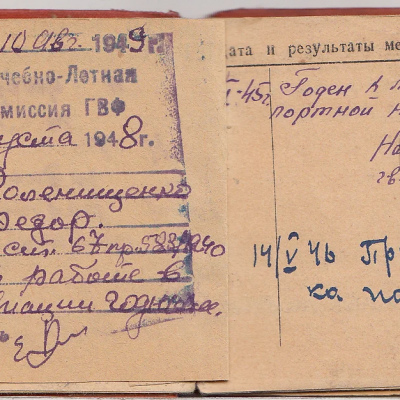 10 Авг. 1949 г.
чебно-Летная
миссия ГВФ
уста 1948 г.
оленищенко
едор.
67 пр. 522/240
работе в
иации годен
ата и результаты ме
45г. Годен к л
портной
На
14/V 46 Пр
ка по